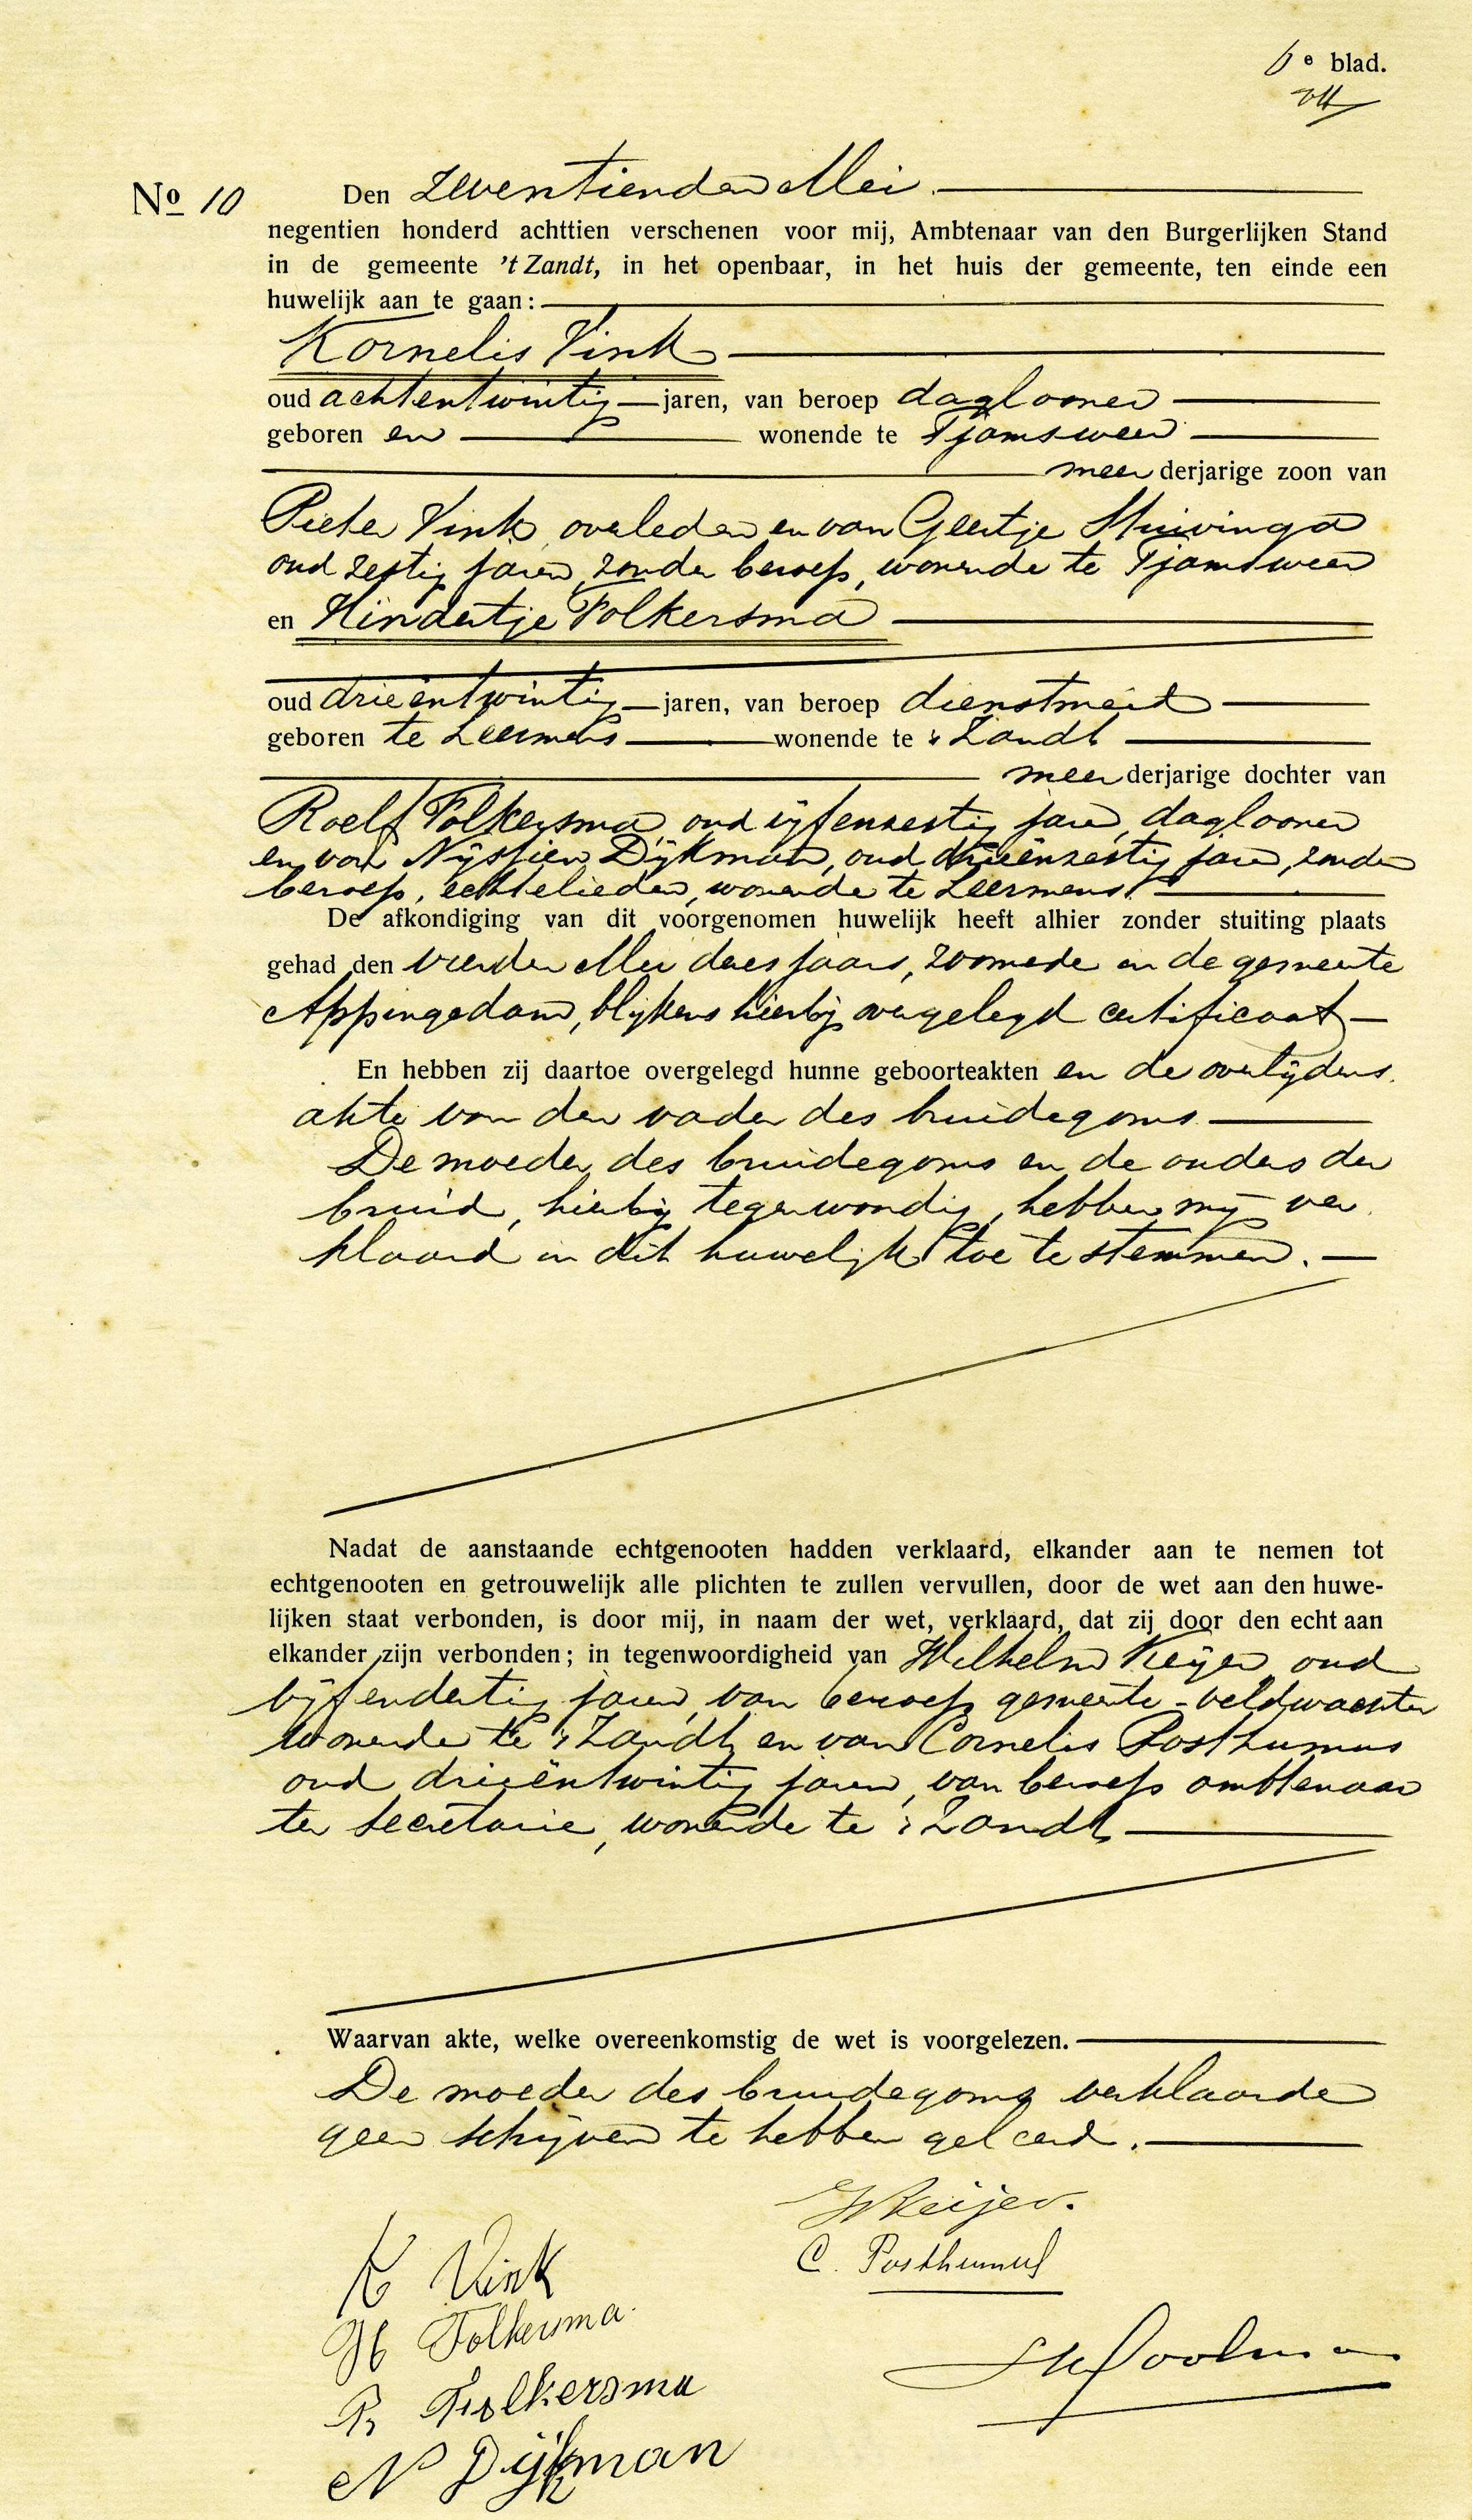 6e blad.
No 10 Den zeventienden Mei.
negentien honderd achttien verschenen voor mij, Ambtenaar van den Burgerlijken Stand
in de gemeente 't Zandt, in het openbaar, in het huis der gemeente, ten einde een
huwelijk aan te gaan:
Kornelis Vink
oud achtentwintig jaren, van beroep daglooner
geboren en wonende te Tjamsweer
meerderjarige zoon van
Pieter Vink, overleden en van Geertje Huivinga
oud zestig jaren, zonder beroep, wonende te Tjamsweer
en Hindertje Folkersma
oud drieëntwintig jaren, van beroep dienstmeid
geboren te Leermens wonende te 't Zandt
meerderjarige dochter van
Roelf Folkersma, oud vijfenzestig jaren, daglooner
en van Nijssien Dijkman, oud drieënzestig jaren, zonder
beroep, echtelieden, wonende te Leermens.
De afkondiging van dit voorgenomen huwelijk heeft alhier zonder stuiting plaats
gehad den vierden Mei dezes jaars, zoomede in de gemeente
Appingedam, blijkens hierbij overgelegd certificaat
En hebben zij daartoe overgelegd hunne geboorteakten en de overlijdens
akte van den vader des bruidegoms
De moeder des bruidegoms en de ouders der
bruid, hierbij tegenwoordig, hebben mij ver
klaard in dit huwelijk toe te stemmen.
Nadat de aanstaande echtgenooten hadden verklaard, elkander aan te nemen tot
echtgenooten en getrouwelijk alle plichten te zullen vervullen, door de wet aan den huwe-
lijken staat verbonden, is door mij, in naam der wet, verklaard, dat zij door den echt aan
elkander zijn verbonden; in tegenwoordigheid van Wilhelm Keijer oud
vijfendertig jaren, van beroep gemeente-veldwachter
wonende te 't Zandt, en van Cornelis Posthumus
oud drieëntwintig jaren, van beroep ambtenaar
ter secretarie, wonende te 't Zandt
Waarvan akte, welke overeenkomstig de wet is voorgelezen.
De moeder des bruidegoms verklaarde
geen schrijven te hebben geleerd.
W Keijer.
K Vink
C. Posthumus
H Folkersma.
R Folkersma
N Dijkman